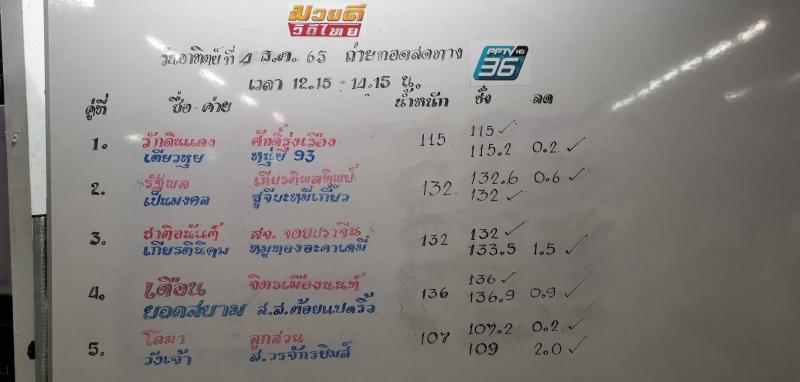 มวยดี
วิถีไทย
วันอาทิตย์ที่ 4 ธ.ค. 65 ถ่ายทอดสดทาง PPTV HD 36
เวลา 12.15 - 14.15 น.
คู่ที่ ชื่อ - ค่าย น้ำหนัก ชั่ง ลด
1. รักดินแดง ศักดิ์รุ่งเรือง 115 115 ✓
เตียวหุย หนุ่ย 93 115.2 0.2 ✓
2. รัฐพล เกียรติพลทิพย์ 132 132.6 0.6 ✓
เป็นมงคล ซูจีบะหมี่เกี๊ยว 132 ✓
3. ชาติอนันต์ สจ. จอยปราจีน 132 132 ✓
เกียรตินิคม หมูทองอะคาเดมี่ 133.5 1.5 ✓
4. เดือน จิตรเมืองนนท์ 136 136 ✓
ยอดสยาม ส.ส.ต้อยแปดริ้ว 136.9 0.9 ✓
5. โลมา ลูกสวน 107 107.2 0.2 ✓
วังเจ้า ส.วรจักรยิมส์ 109 2.0 ✓